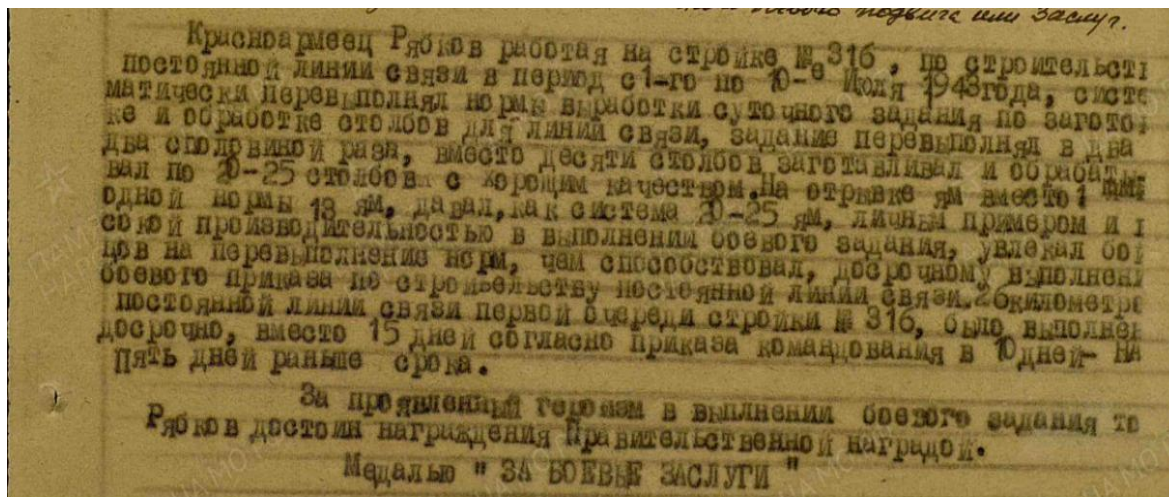 подвига или заслуг.
Красноармеец Рябков работая на стройке № 316, по строительст
постоянной линии связи в период с 1-го по 10-е Июля 1943года, систе
матически перевыполнял нормы выработки суточного задания по загото
ке и обработке столбов для линии связи, задание перевыполнял в два
два споловиной раза, вместо десяти столбов заготавливал и обрабаты
вал по 20-25 столбов с хорошим качеством. На отрывке ям вместо
одной нормы 13 ям, давал, как система 20-25 ям, личным примером и
сокой производительностью в выполнении боевого задания, увлекал бой
цов на перевыполнение норм, чем способствовал, досрочному выполнени
боевого приказа по строительству постоянной линии связи. 26километро
постоянной линии связи первой очереди стройки № 316, было выполнен
досрочно, вместо 15 дней согласно приказа командования в 10дней- на
Пять дней раньше срока.
За проявленный героизм в выплнении боевого задания то
Рябков достоин награждения Правительственной наградой.
Медалью " ЗА БОЕВЫЕ ЗАСЛУГИ "